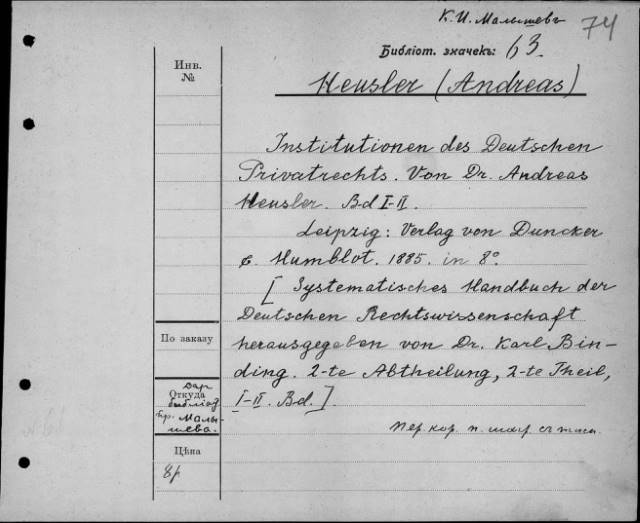 К. И. Малышевъ
74
Библіот. значекъ: 63.
Инв.
№
Heusler (Andreas)
Institutionen des Deutschen
Privatrechts. Von Dr. Andreas
Heusler. Bd I-II.
Leipzig: Verlag von Duncker
& Humblot. 1885. in 8°
[Systematisches Handbuch der
Deutschen Rechtswissenschaft
herausgegeben von Dr. Karl Bin-
ding. 2-te Abtheilung, 2-te Theil,
I-II. Bd.]
По заказу
Даръ
Откуда
бр. Малы-
шева.
Цѣна
8р
пер. кор. п.